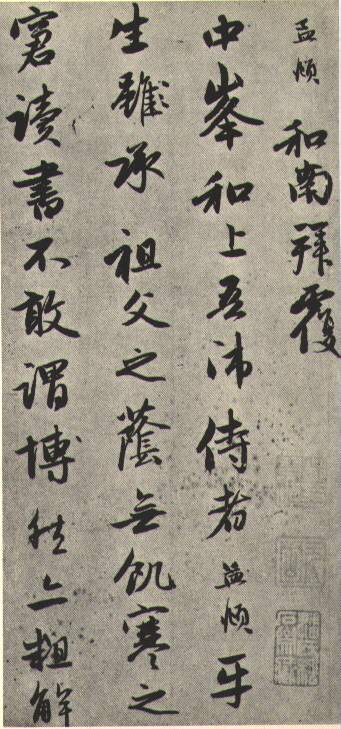 孟頫和南拜覆
中峯和上吾師侍者孟頫平
生雖承祖父之蔭无飢寒之
窘讀書不敢謂博然亦粗解